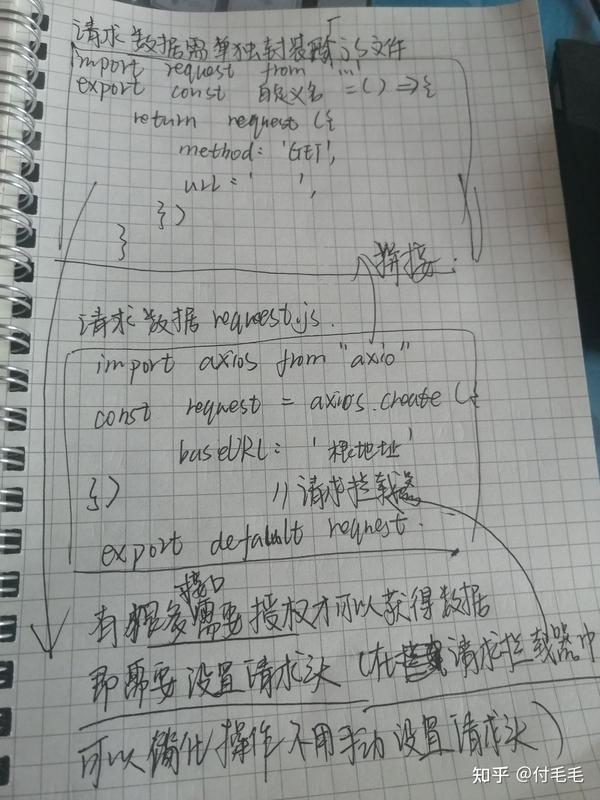 请求数据需单独封装 js文件
import request from '…'
export const 自定义名 = () => {
return request ({
method: 'GET',
url: ' ',
})
}
拼接.
请求数据 request.js.
import axios from "axio"
const request = axios.create ({
baseURL: '根地址'
})
//请求拦截器
export default request.
接口
有很多需要授权才可以获得数据
即需要设置请求头 (在请求拦截器中
可以简化操作 不用手动 设置请求头)
知乎 @付毛毛